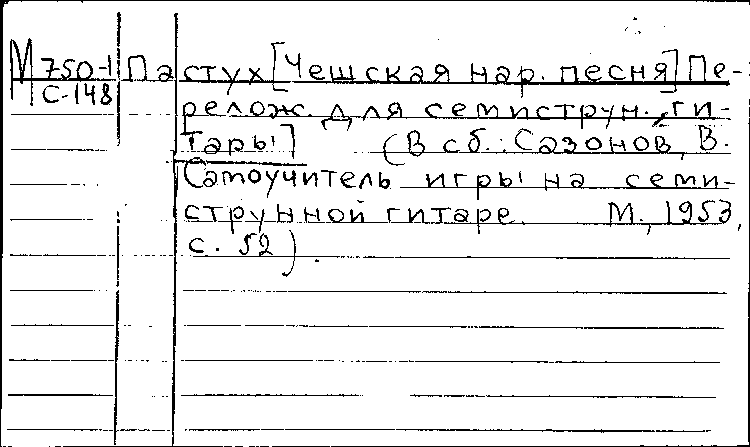 М 750-1 Пастух [Чешская нар. песня] Пе-
С-148 релож. для семиструн. ги-
тары] (В сб.: Сазонов, В.
Самоучитель игры на семи-
струнной гитаре. М., 1953,
с. 52).